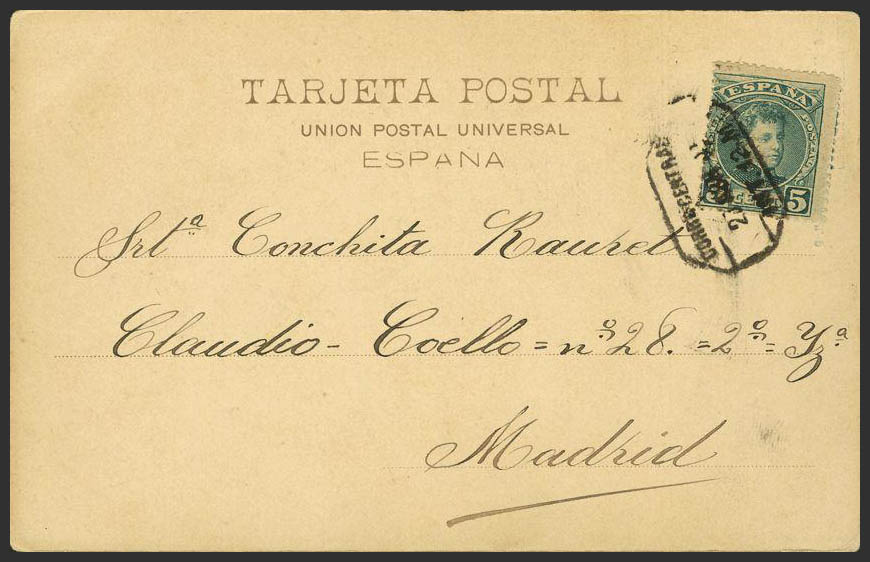 TARJETA POSTAL
UNION POSTAL UNIVERSAL
ESPAÑA
ESPAÑA
5
Srtª Conchita Rauret
Claudio-Coello = nº 28. = 2º = Yzª
Madrid